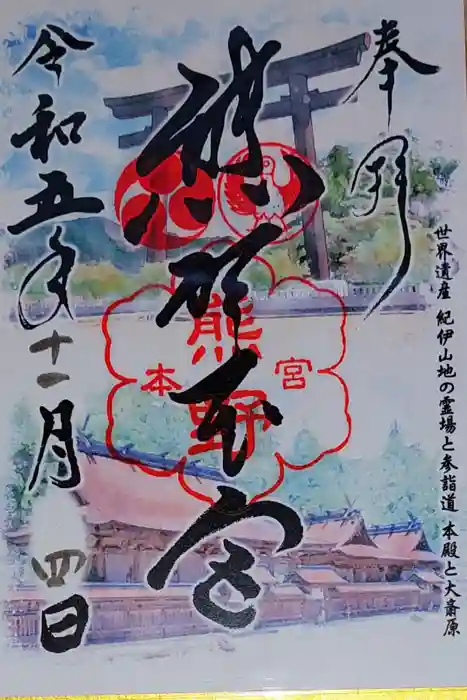 奉拝
世界遺産 紀伊山地の霊場と参詣道 本殿と大斎原
熊野本宮
熊野
本宮
令和五年十一月四日